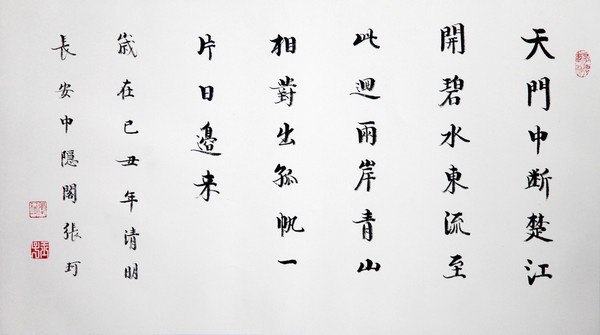 天門中断楚江
開碧水東流至
此迴兩岸青山
相對出孤帆一
片日邊来
歲在己丑年清明
長安中隱閣張珂